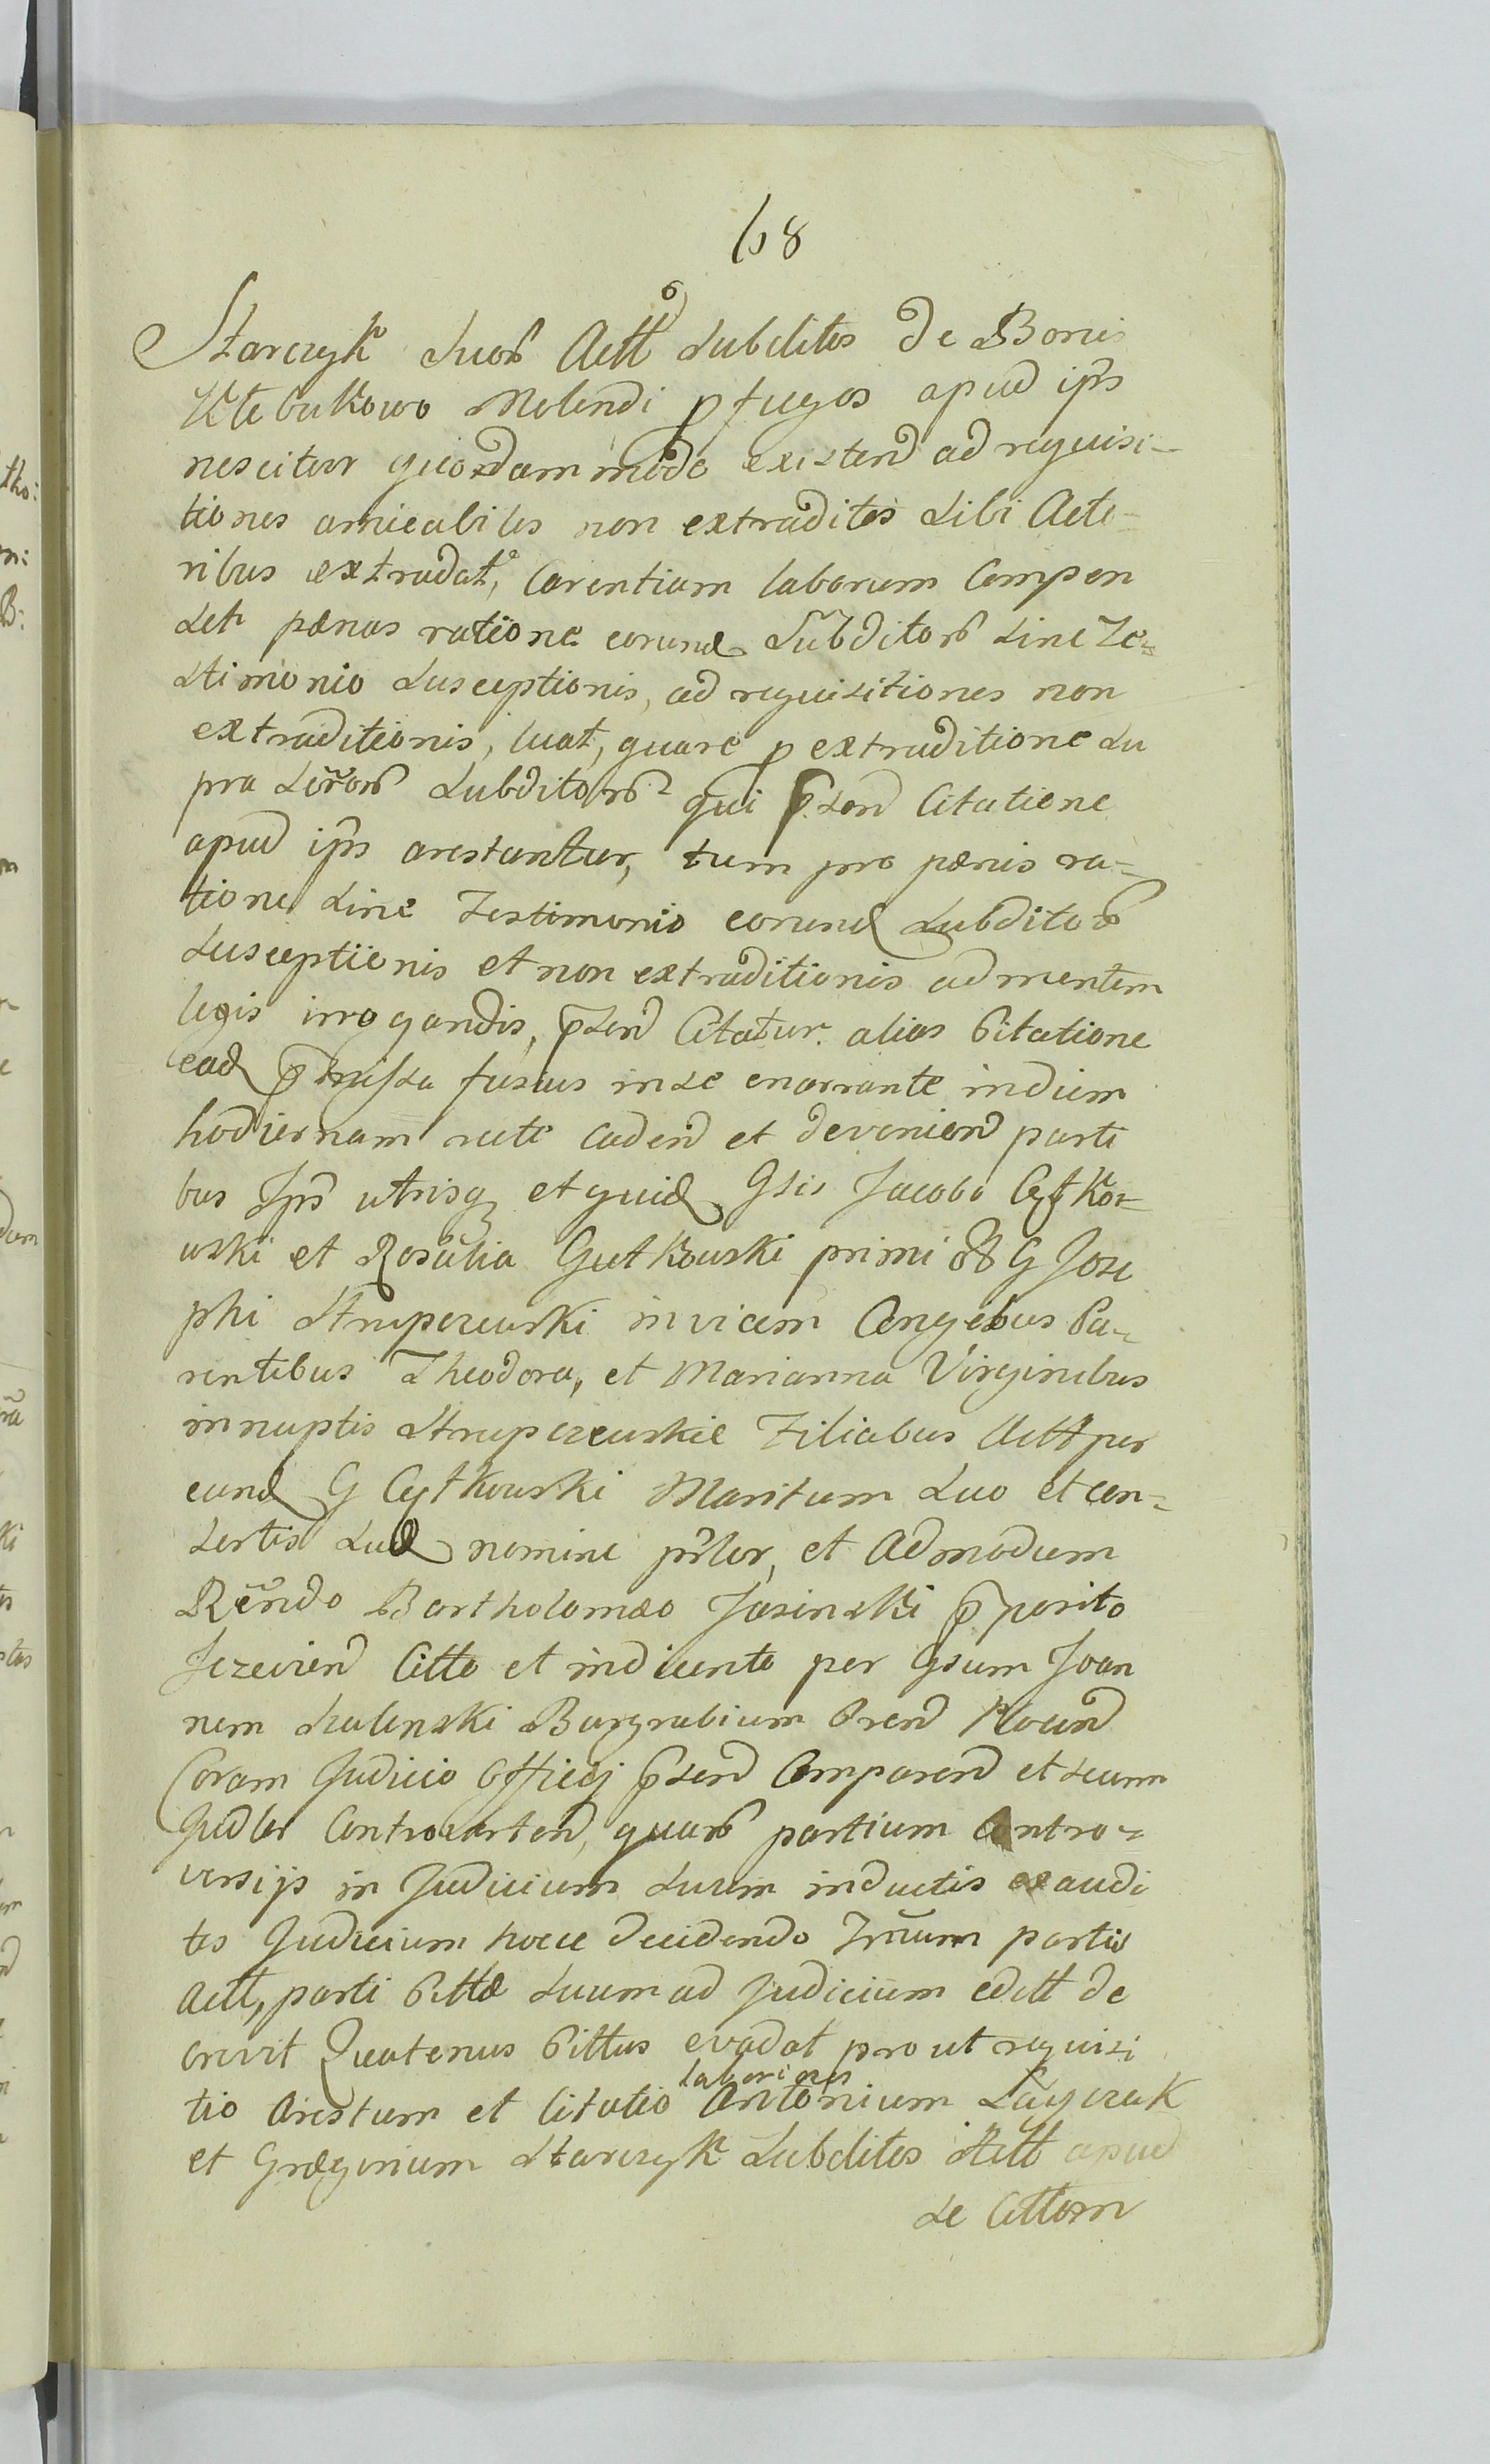 68
Starczyk suorb Actt subditos de Bonis
Klebukowo Molendi pfugos apud ipss
nescitur quodammodo existend ad requisi-
tiones amicabiles non extraditos sibi Acto-
ribus extradat, Carentiam laborum Compen
set pænas ratione eorund Subditorb sine Te-
stimonio susceptionis, ad requisitiones non
extraditionis, luat, quare p extraditione su
pra Subditorb qui psend Citatione
apud ips arestantur, tum pro pænis ra-
tione sine Testimonio eorund subditorb
susceptionis et non extraditionis ad mentem
legis irrogandis, psend Citatur. alias Citatione
ead pmissa fusius in se enarrante in diem
hodiernam recte cadend et deveniend parti
bus Ips utrisq et quid Gsis Jacobo Cytkow-
wski et Rosalia Gutkowski primi G Jose
phi Strupczewski invicem Conjgibus Pa-
rentibus Theodora, et Marianna Virginibus
innuptis Strupczewskie Filiabus Actt per
eund G Cytkowski Maritum suo et con-
sortis suæ nomine prsler, et Admodum
Rndo Bartholomæo Jasinski pposito
Jezevien Citto et inducente per Gsum Joan
nem Burgrabium
Coram Judicio Officij psend Comparend et secum
Judler Controvertend, quarb partium Contro-
versijs in Judicium suum inductis exaudi
tis Judicium hocce decidendo Tnum partis
Actt, parti Cittæ suum ad Judicium editt de
crevit Quatenus Cittus evadat prout requisi
tio Arestum et Citatio laboriosos Antonium Layczak
et Grægorium Starczyk Subditos Actt apud
se Cittom